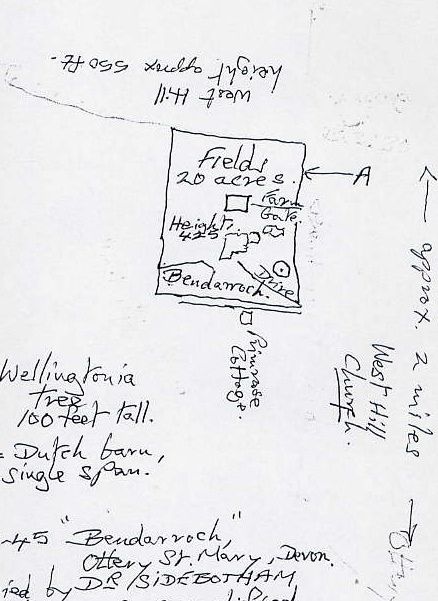 West Hill
height approx 550 ft.
Fields
20 acres.
A
Farm
Gate.
Height
425
Drive
Bendarroch.
Primrose
Cottage.
West Hill
Church.
approx. 2 miles
Wellingtonia
tree
100 feet tall.
= Dutch barn,
single span.
45 "Bendarroch,"
Ottery St. Mary, Devon.
ied by DR SIDEBOTHAM